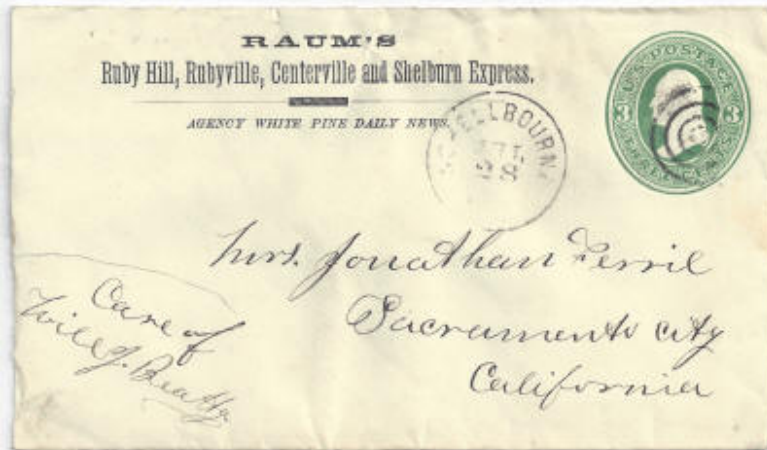 RAUM'S
Ruby Hill, Rubyville, Centerville and Shelburn Express.
AGENCY WHITE PINE DAILY NEWS.
SCHELLBOURNE
28
U.S. POSTAGE
3 3
THREE CENTS
Mrs. Jonathan Ferril
Sacramento city
California
Care of
Will J. Beatty